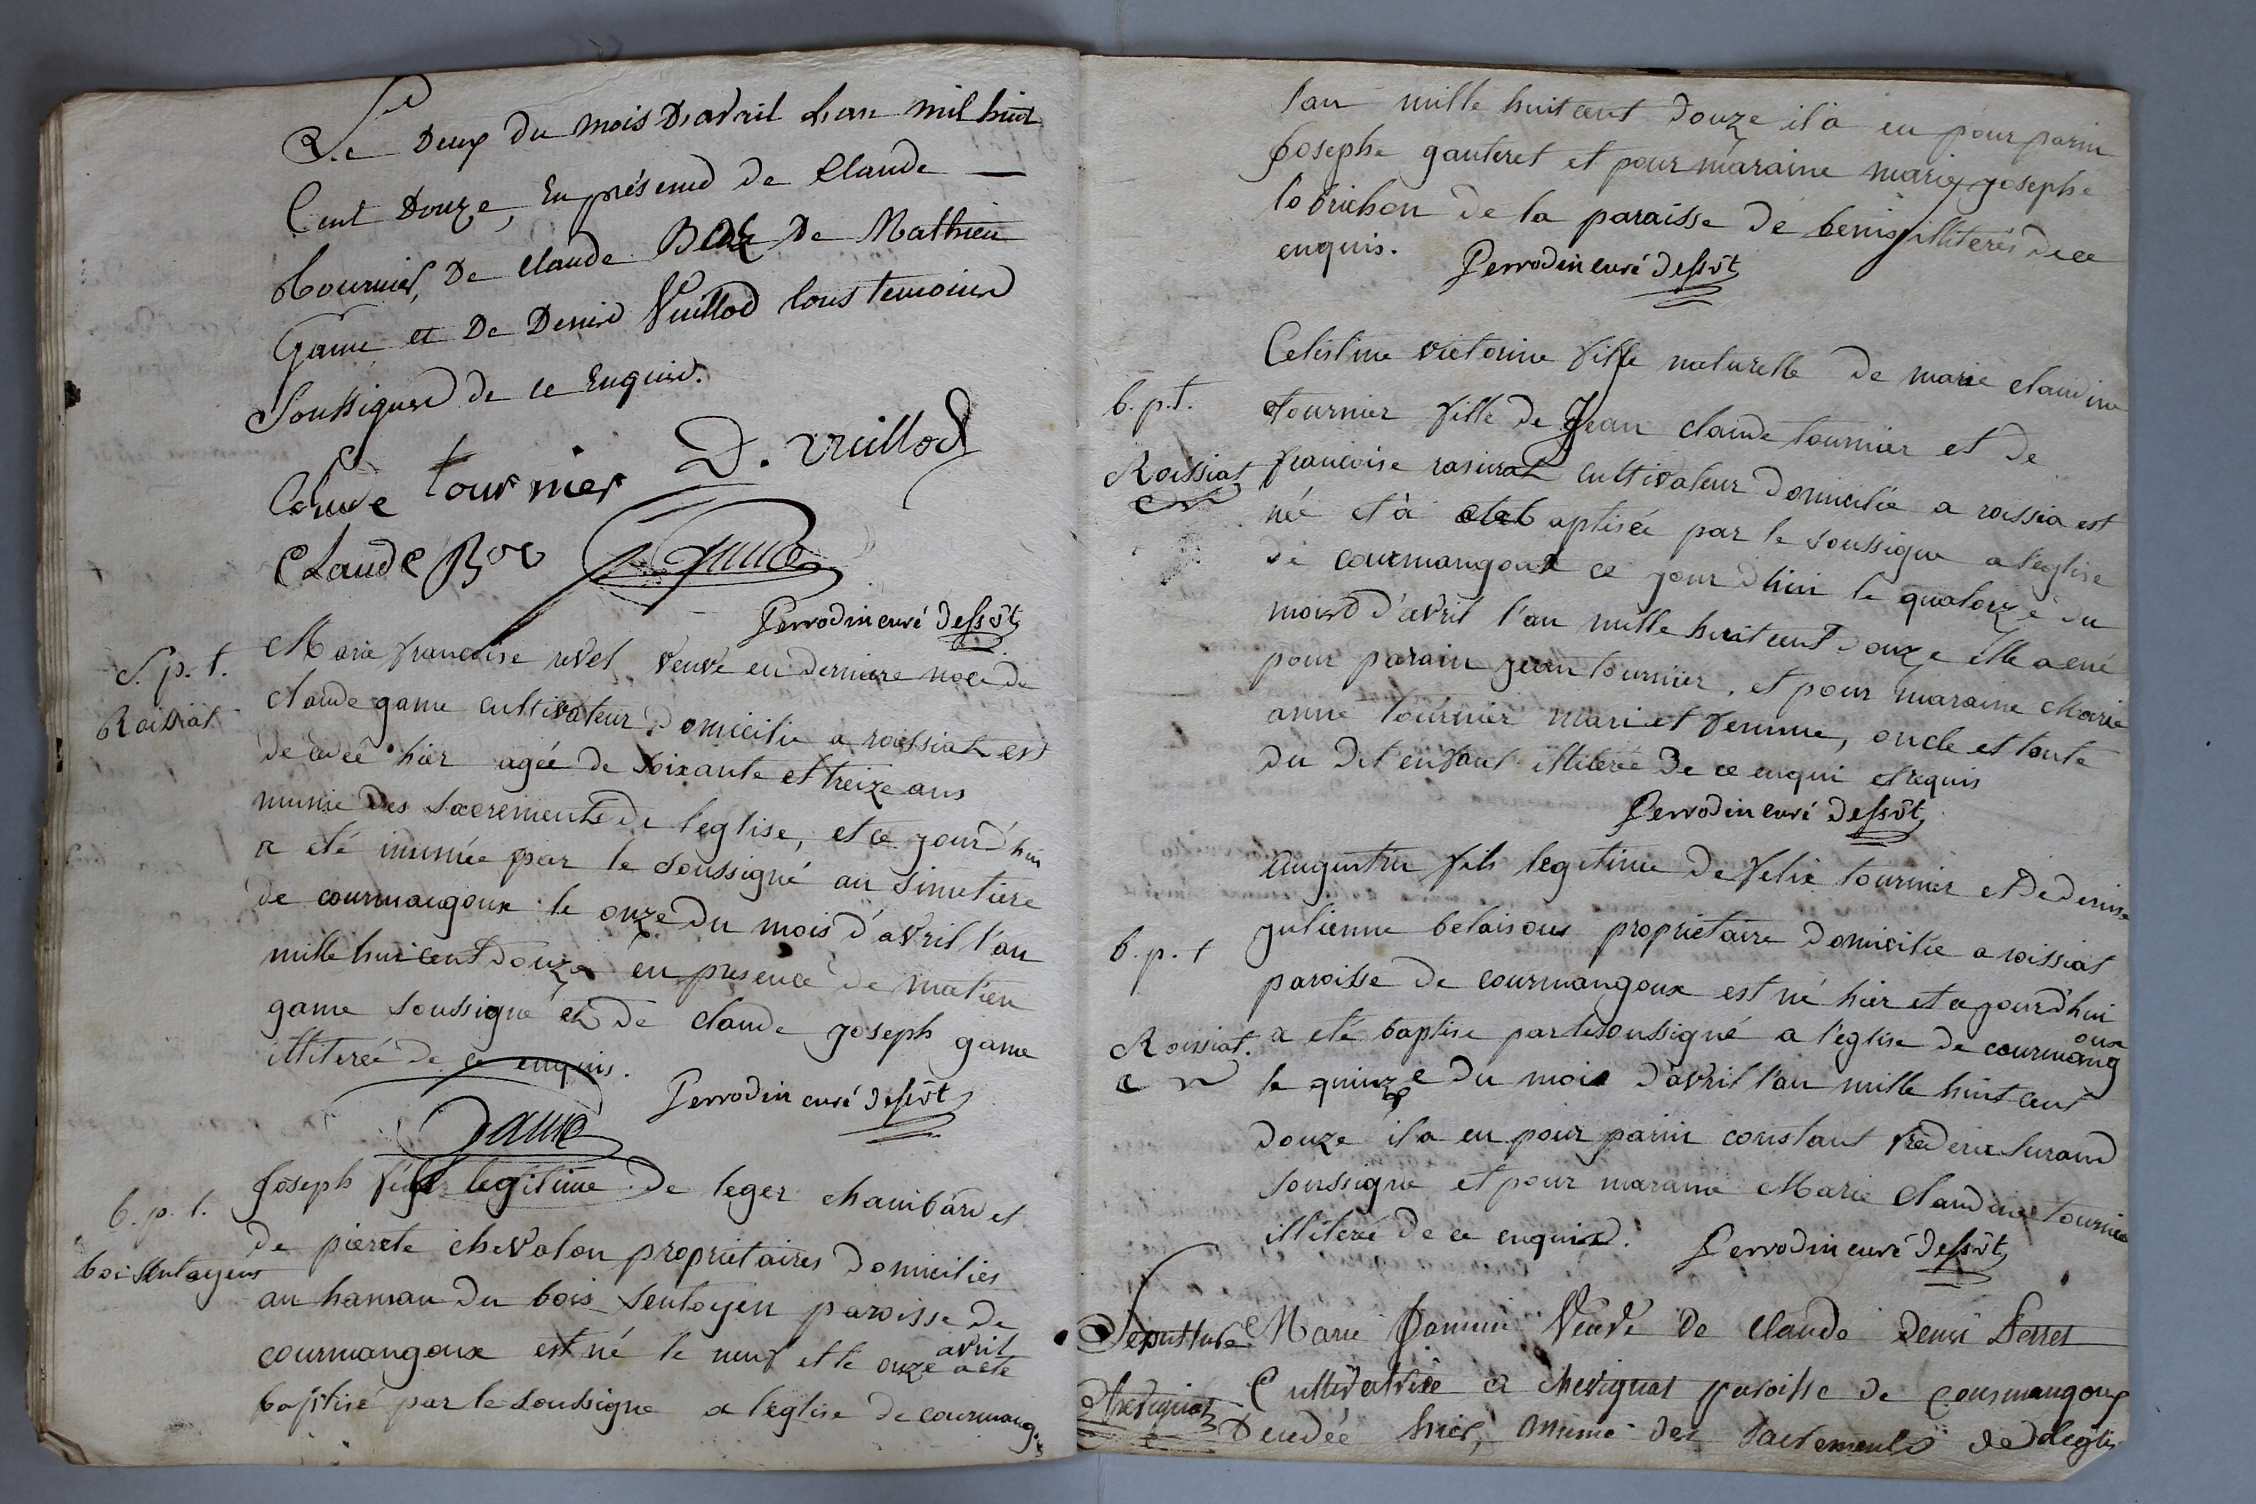 Le Deux du mois D'avril L'an mil huit
Cent Douze, En présence de Claude
tournier, De Claude Boz De Mathieu
Game et De Denis Vuillod tous temoins
Soussignes de ce Enquis.
Colaude tournier D. vuillod
claude Boz Game
Perrodin curé dessvt
S. p. t.
Roissiat
Marie francoise revel veuve en derniere noce de
claude game cultivateur domicilie a roissiat est
decedee hier agée de soixante et treize ans
munie des sacrements de l'eglise, et ce jourd'hui
a été inumée par le soussigné au simetiere
de courmangoux le onze du mois d'avril l'an
mille huit cent douze en presence de matieu
game soussigné et de claude joseph game
illiteré de ce enquis.
Perrodin curé dessvt
Game
b. p. t.
boi sentayens
joseph fils legitime de leger chambard et
de pierete chevalon proprietaires domiciliés
au hamau du bois sentoyen paroisse de
courmangoux est né le neuf et le onze avril a ete
baptisé par le soussigne a l'eglise de courmang
l'an mille huit cent douze il a eu pour parin
josephe gauteret et pour maraine marie josephe
lobrichon de la paraisse de benis illiterés de ce
enquis. Perrodin curé dessvt
b. p. t.
Roissiat
Celestine victorine fille naturelle de marie claudine
tournier fille de Jean claude tournier et de
francoise rasurat cultivateur domicilié a roissia est
née et à eteb aptisée par le soussigne a l'eglise
de courmangoux ce jour d'hui le quatorze du
moisd d'avril l'an mille huit cent douze elle a eue
pour parain jean tournier, et pour maraine Marie
anne tournier mari et femme, oncle et tante
du dit enfant illiteré de ce enqui et requis
Perrodin curé dessvt
b. p. t
Roissiat.
augustin fils legitime de felix tournier et de denise
julienne belaisous proprietaire domicilié a roissiat
paroisse de courmangoux est né hier et ce jourd'hui
a eté baptise par le soussigné a l'eglise de courmangoux
le quinze du mois d'avril l'an mille huit cent
douze il a eu pour parin constant frederic Surand
soussigne et pour maraine Marie Claudine tournier
illiteré de ce enquisd. Perrodin curé dessvt
Sepulture
chevignat
Marie Jannin Veuve de claude Denis Perret
Cultivatrice a chevignat paroisse de Courmangoux
Decedée hier, munie des Sacrements de l'eglis